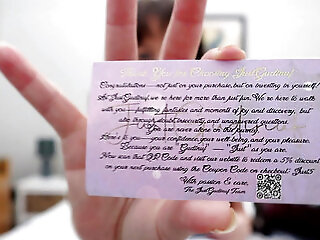 Thank You for Choosing JustGustavof
Congratulations — not just on your purchase, but on Investing in yourself!
At JustGustavof, we're here for more than just fun. We're here to walk
with you, fulfilling fantasies and moments of joy and discovery, but
also through doubt, insecurity, and unanswered questions.
You are never alone on this journey.
Here's to you — your confidence, your well-being, and your pleasure.
Because you are "as you are.
Now scan that QR Code and visit our website to redeem a 5% discount
on your next purchase using the Coupon Code on checkout: Just5
With passion & care,
The Team